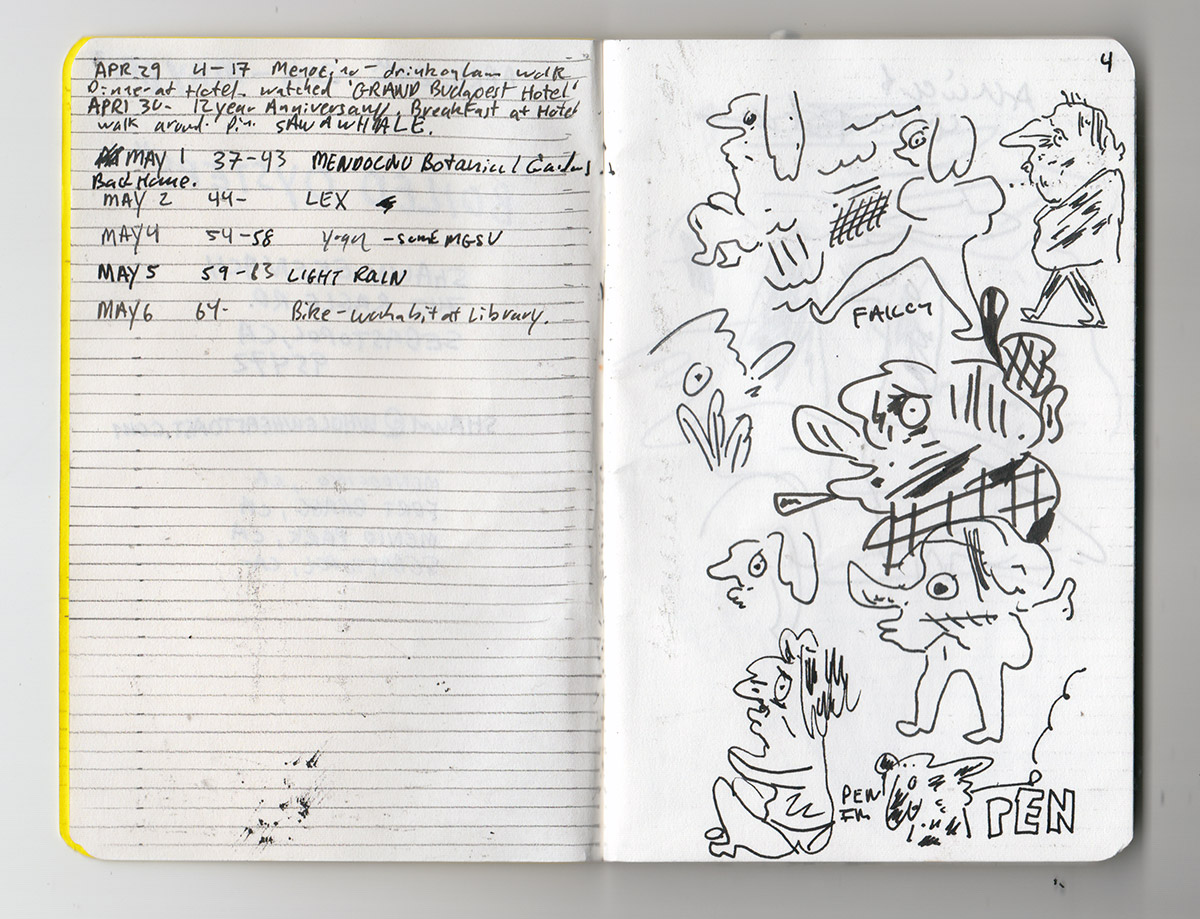 APR 29 4-17 Menocino - drinkoglam walk
Dinner at Hotel - watched 'GRAND Budapest Hotel'
APRI 30 - 12 year Anniversary, Breakfast at Hotel
walk around SAW A WHALE.
MAY 1 37-43 MENDOCNO Botanical Gardens
Back Home.
MAY 2 44- LEX
MAY 4 54-58 Yoga - some MGSV
MAY 5 59-63 LIGHT RAIN
MAY 6 64- Bike - at Library.
4
PEN
PEN